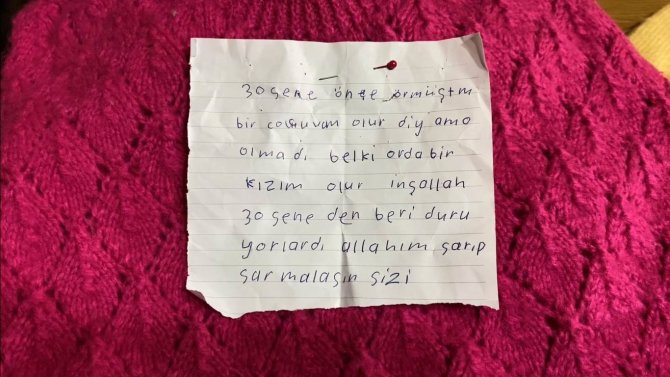 30 sene önce örmüştm
bir çocuğuvam olur diy ama
olmadı belki orda bir
kızım olur inşallah
30 sene den beri duru
yorlardı allahım sarıp
sarmalasın sizi